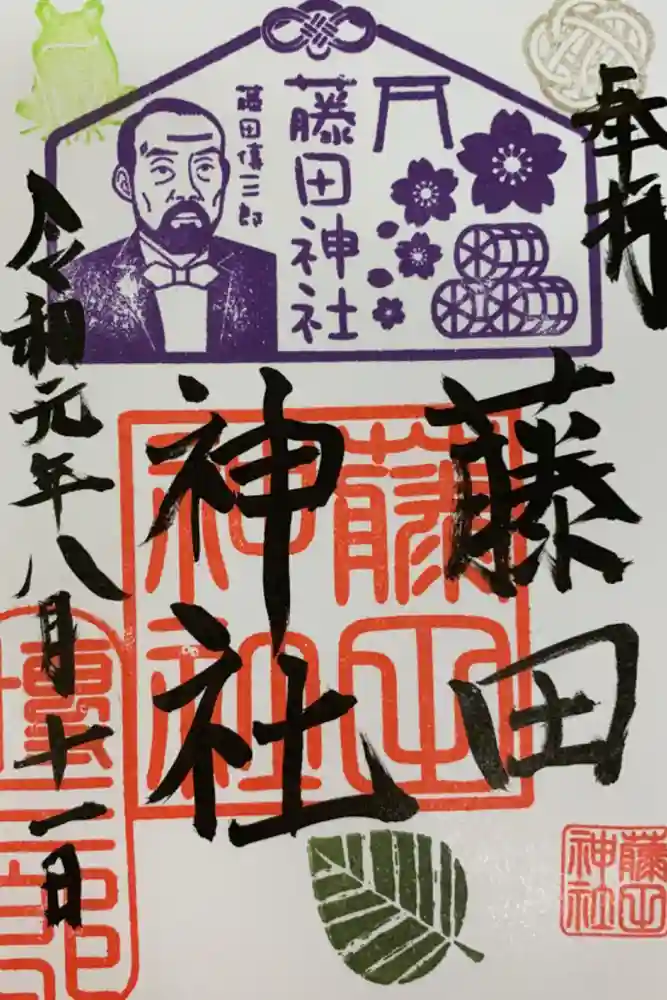 奉拝
藤田
神社
令和元年八月十一日
藤田神社
藤田傳三郎
藤田
神社
傳三郎
藤田
神社